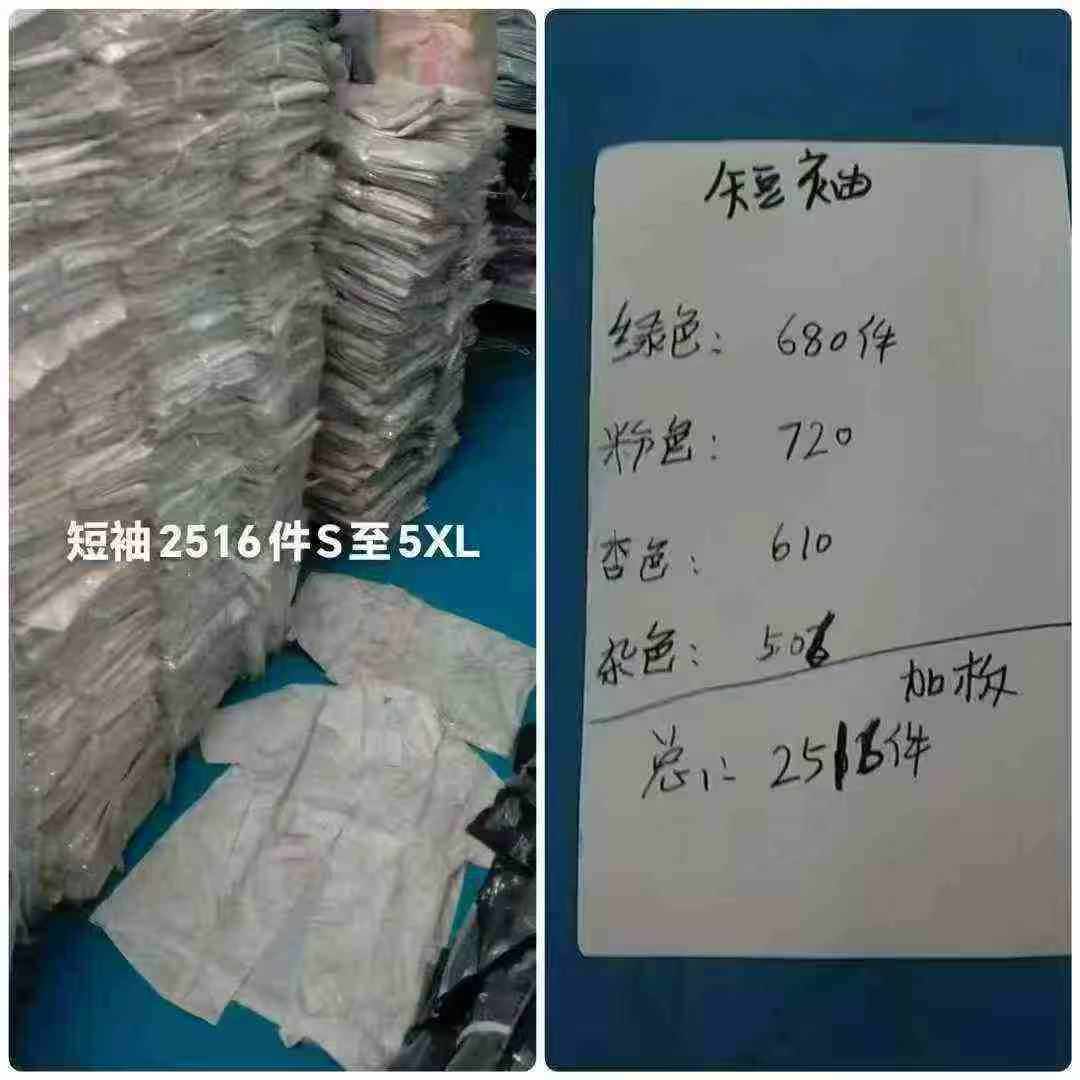 短袖2516件S至5XL
短袖
绿色: 680件
粉色: 720
杏色: 610
杂色: 506
加板
总: 2516件